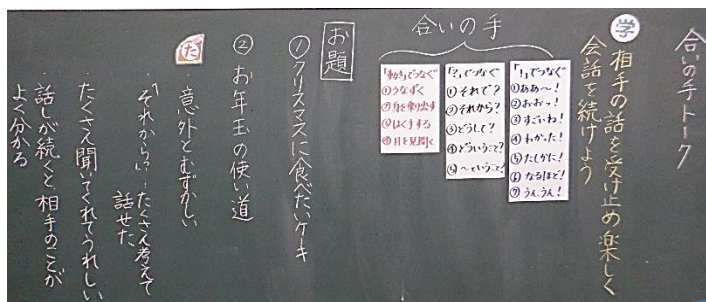 合いの手トーク
学
相手の話を受け止め楽しく
会話を続けよう
合いの手
「！」でつなぐ
①ああ～！
②おおっ！
③すごいね！
④わかった！
⑤たしかに！
⑥なるほど！
⑦うんうん！
「？」でつなぐ
①それで？
②それから？
③どうして？
④どういうこと？
⑤～ということ？
「動き」でつなぐ
①うなずく
②身を乗り出す
③はく手する
④目を見開く
お題
①クリスマスに食べたいケーキ
②お年玉の使い道
た
意外とむずかしい
・「それから？」…たくさん考えて
話せた
・たくさん聞いてくれてうれしい
・話しが続くと相手のことが
よく分かる